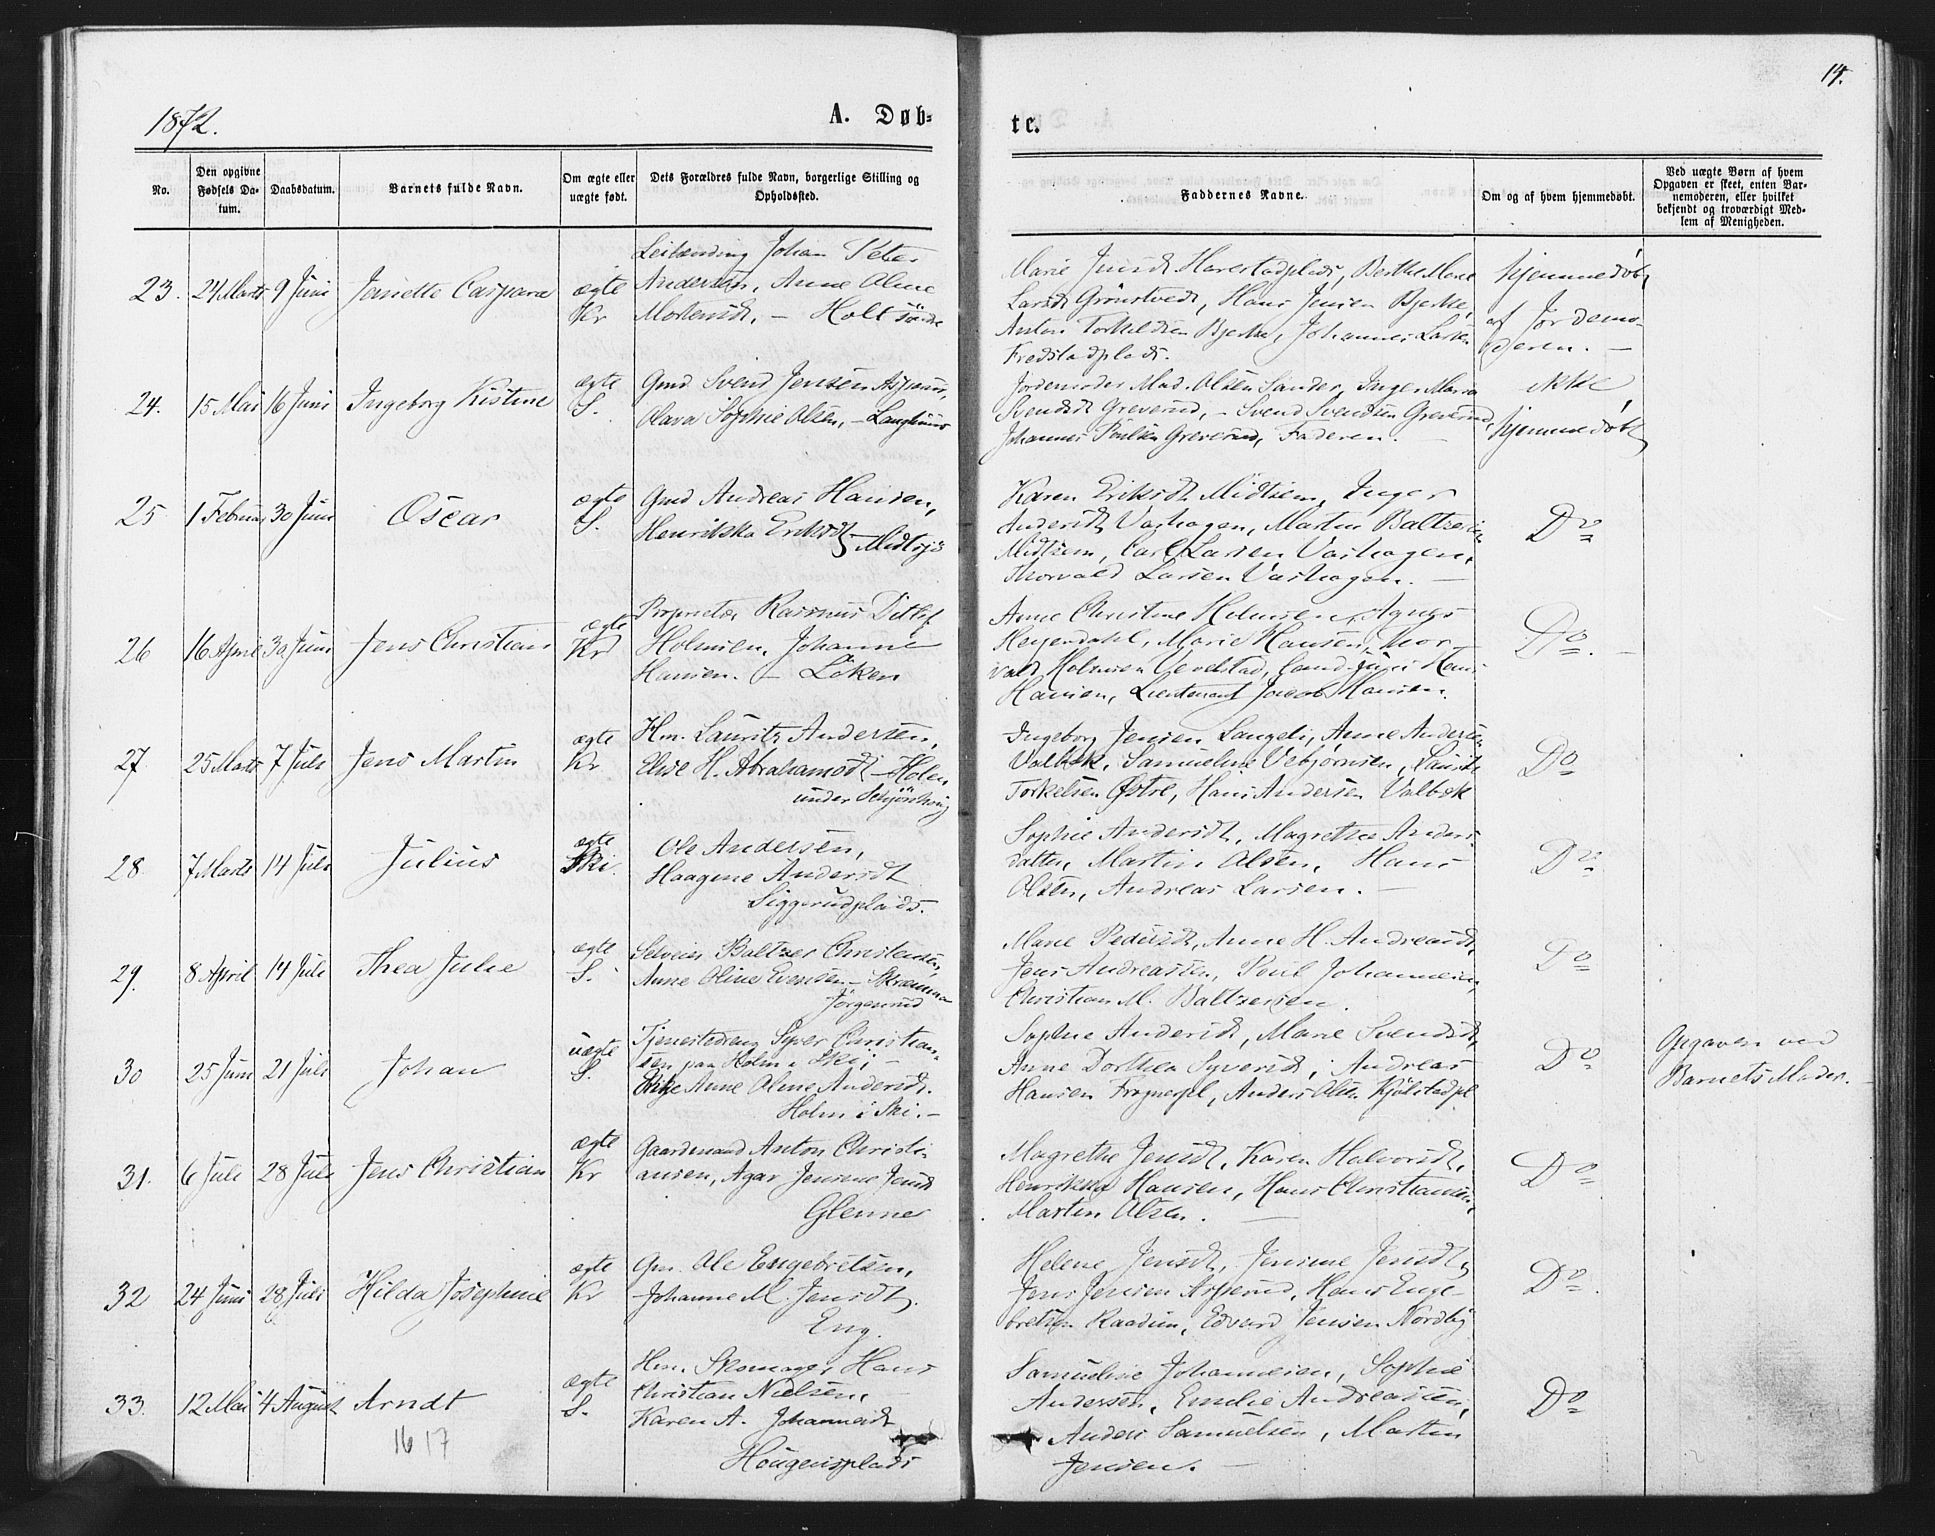 1872.
A. Døb-
te.
14.
No.
Den opgivne Fødsels Da-tum.
Daabsdatum.
Barnets fulde Navn.
Om ægte eller uægte født.
Dets Forældres fulde Navn, borgerlige Stilling og Opholdssted.
Faddernes Navne.
Om og af hvem hjemmedøbt.
Ved uægte Børn af hvem Opgaven er skeet, enten Bar-nemoderen, eller hvilket bekjendt og troværdigt Med-lem af Menigheden.
23. 24 Marts 9 Juni Janette Caspara ægte Kr
Leilænding Johan Peter
Andersen, Anne Oline
Mortensdt. – Holt söndre
Marie Jensdt Harestadplads, Berthe Marie
Larsdt Grönstvedt, Hans Jensen Bjerke,
Anton Torkildsen Bjerke, Johannes Larsen
Fredstadplads.
hjemmedöbt
af Jordemo-
deren. –
24. 15 Mai 16 Juni Ingeborg Kistine ægte S.
Gmd Svend Jensen Aspmus,
Olava Sophie Olsen, – Langhuus
Jordemoder Mad. Olsen Sander, Inger Maria
Svendsdt Greverud, – Svend Svendsen Greverud,
Johannes Poulsen Greverud, Faderen. –
ikke
hjemmedöbt
25 1 Februar 30 Juni Oscar ægte S.
Gmd Andreas Hansen,
Henrikka Eriksdt,
– Midtsjö
Karen Eriksdt Midtsem, Inger
Andersdt Vashagen, Martin Baltzersen
Midtsem, Carl Larsen Vashagen,
Thorvald Larsen Vashagen. –
Do
26 16 April 30 Juni Jens Christian ægte Kr
Proprietær Rasmus Ditlef
Holmsen, Johanne
Hansen. – Löken
Anne Christine Holmsen, Agnes
Heyerdahl, Marie Hansen, Thor-
vald Holmsen Vevelstad, Cand. juris Hans
Hansen, Lieutenant Jacob Hansen.
Do. –
27. 25 Marts 7 Juli Jens Martin ægte Kr
Hm. Lauritz Andersen,
Elise H. Abrahamsdt – Holen
under Schjönhoug
Ingeborg Jensen Langeli, Anne Andersen
Valbæk, Samueline Vebjørnsen, Laurits
Torkelsen Østre, Hans Andersen Valbæk
Do
28 7 Marts 14 Juli Julius ægte Ski.
Ole Andersen,
Haagine Andersdt
Siggerudplads.
Sophie Andersdt, Magrethe Anders-
datter, Martin Olsen, Hans
Olsen, Andreas Larsen. –
Do
29. 8 April 14 Juli Thea Julie ægte S.
Selveier Baltzer Christensen,
Anne Oline Evensen –
Jörgenrud
Marie Pedersdt, Anne H. Andreasdt,
Jens Andreassen, Poul Johannesen,
Christian M. Baltzersen.
Do
30 25 Juni 21 Juli Johan uægte S.
Tjenestedreng Syver Christian-
sen paa Holm i Ski; –
Pige Anne Oline Andersdt.
Holm i Ski. –
Sophie Andersdt, Marie Svendsdt,
Anne Dorthea Syversdt; Andreas
Hansen Frognerpl, Anders Olsen Kjölstadpl
Do
Opgaven ved
Barnets Moder. –
31. 6 Juli 28 Juli Jens Christian ægte Kr
Gaardmand Anton Christi-
ansen, Agar Jensine Jensdt
Glenne
Magrethe Jensdt, Karen Halvorsdt,
Henrikka Hansen, Hans Christiansen,
Martin Olsen. –
Do
32 24 Juni 28 Juli Hilda Josephine ægte Kr
Gm. Ole Engebretsen,
Johanne M. Jensdt.
Eng.
Helene Jensdt, Jensine Jensdt,
Jens Jensen Aspserud, Hans Enge-
bretsen Raadim, Edvard Jensen Nordby
Do.
33. 12 Mai 4 August Arndt ægte S.
Hm. Skomager Hans
Christian Nielsen,
Karen A. Johannesdt
Hougensplads
Samueline Johannesen, Sophie
Andersen, Emilie Andreassen,
Anders Samuelsen, Martin
Jensen. –
Do
16 17